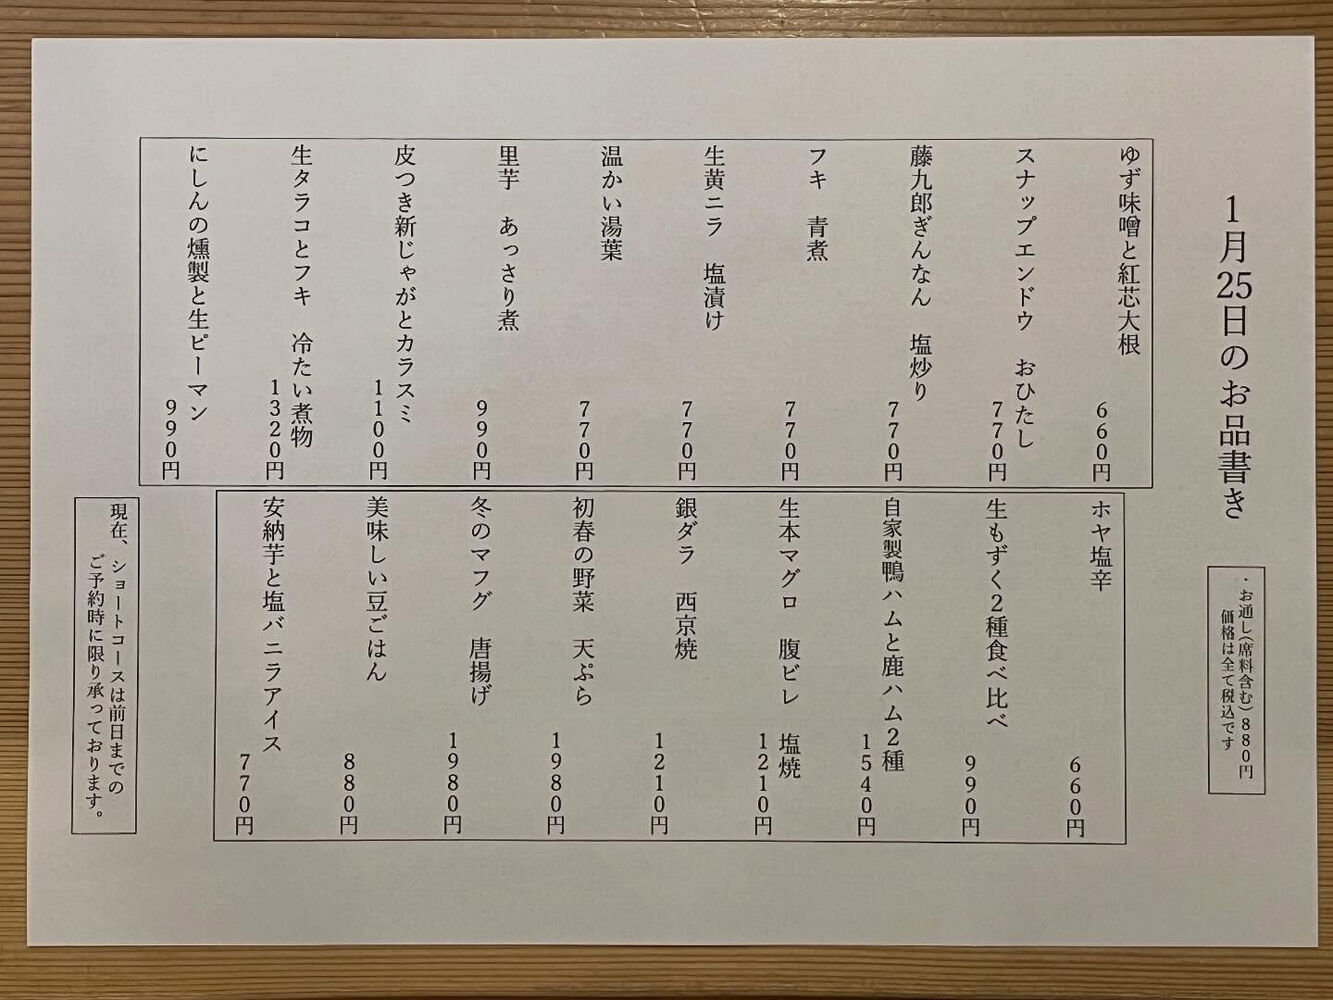 1月25日のお品書き
・お通し(席料含む)880円
価格は全て税込です
ゆず味噌と紅芯大根
660円
スナップエンドウ　おひたし
770円
藤九郎ぎんなん　塩炒り
770円
フキ　青煮
770円
生黄ニラ　塩漬け
770円
温かい湯葉
770円
里芋　あっさり煮
990円
皮つき新じゃがとカラスミ
1100円
生タラコとフキ　冷たい煮物
1320円
にしんの燻製と生ピーマン
990円
ホヤ塩辛
660円
生もずく2種食べ比べ
990円
自家製鴨ハムと鹿ハム2種
1540円
生本マグロ　腹ビレ　塩焼
1210円
銀ダラ　西京焼
1210円
初春の野菜　天ぷら
1980円
冬のマフグ　唐揚げ
1980円
美味しい豆ごはん
880円
安納芋と塩バニラアイス
770円
現在、ショートコースは前日までの
ご予約時に限り承っております。